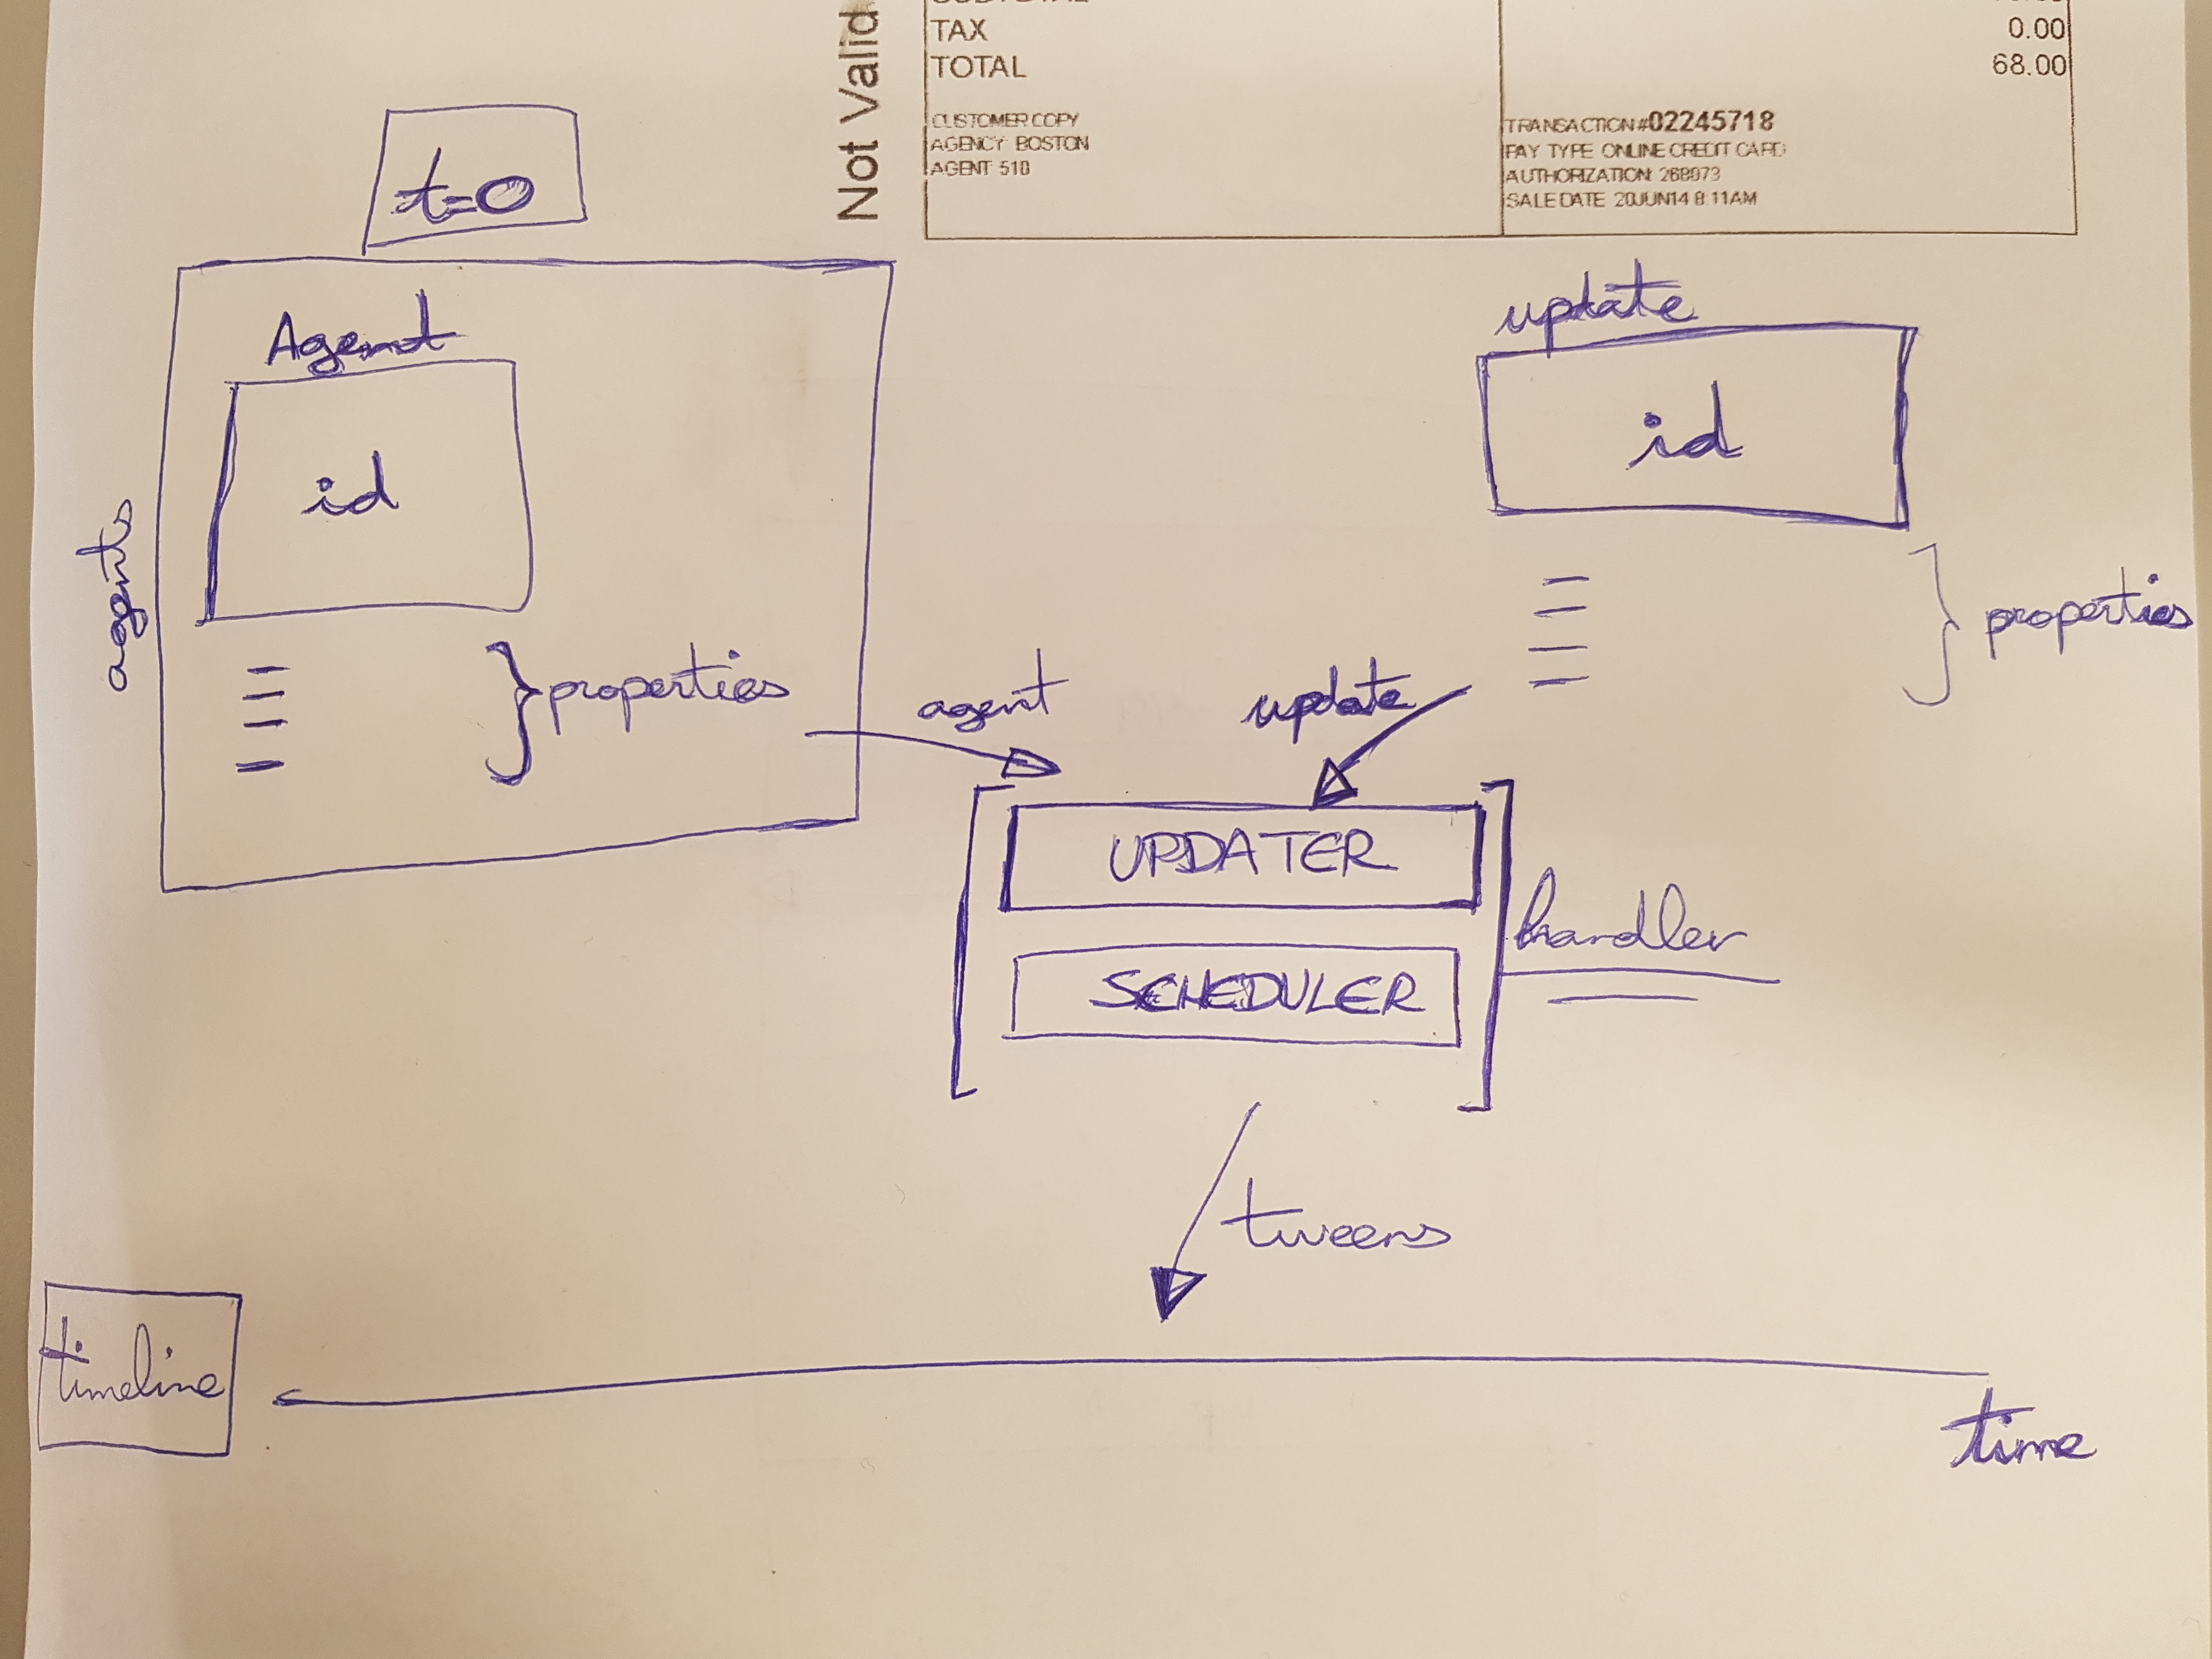 TAX 0.00
TOTAL 68.00
Not Valid
CUSTOMER COPY
AGENCY BOSTON
AGENT 510
TRANSACTION #02245718
PAY TYPE ONLINE CREDIT CARD
AUTHORIZATION 268973
SALE DATE 20JUN14 8:11AM
t=0
agents
Agent
id
properties
update
id
properties
agent
update
UPDATER
SCHEDULER
handler
tweens
timeline
time